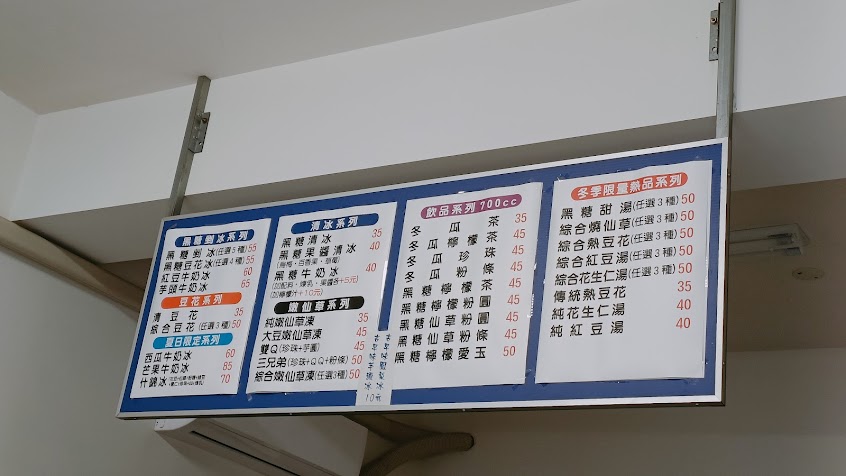 黑糖剉冰系列
黑糖剉冰(任選5種) 55
黑糖豆花冰(任選4種) 55
紅豆牛奶冰 60
芋頭牛奶冰 65
豆花系列
清豆花 35
綜合豆花(任選3種) 50
夏日限定系列
西瓜牛奶冰 60
芒果牛奶冰 85
什錦冰 70
清冰系列
黑糖清冰 35
黑糖果醬清冰 40
(烏梅、百香果、草莓)
黑糖牛奶冰 40
(加配料、煉乳、果醬各+5元)
(加檸檬汁+10元)
嫩仙草系列
純嫩仙草凍 35
大豆嫩仙草凍 45
雙Q(珍珠+芋圓) 45
三兄弟(珍珠+QQ+粉條) 50
綜合嫩仙草凍(任選3種) 50
10元
飲品系列700cc
冬瓜茶 35
冬瓜檸檬茶 45
冬瓜珍珠 45
冬瓜粉條 45
黑糖檸檬茶 45
黑糖檸檬粉圓 50
黑糖仙草粉圓 45
黑糖仙草粉條 45
黑糖檸檬愛玉 50
冬季限量熱品系列
黑糖甜湯(任選3種) 50
綜合燒仙草(任選3種) 50
綜合熱豆花(任選3種) 50
綜合紅豆湯(任選3種) 50
綜合花生仁湯(任選3種) 50
傳統熱豆花 35
純花生仁湯 40
純紅豆湯 40